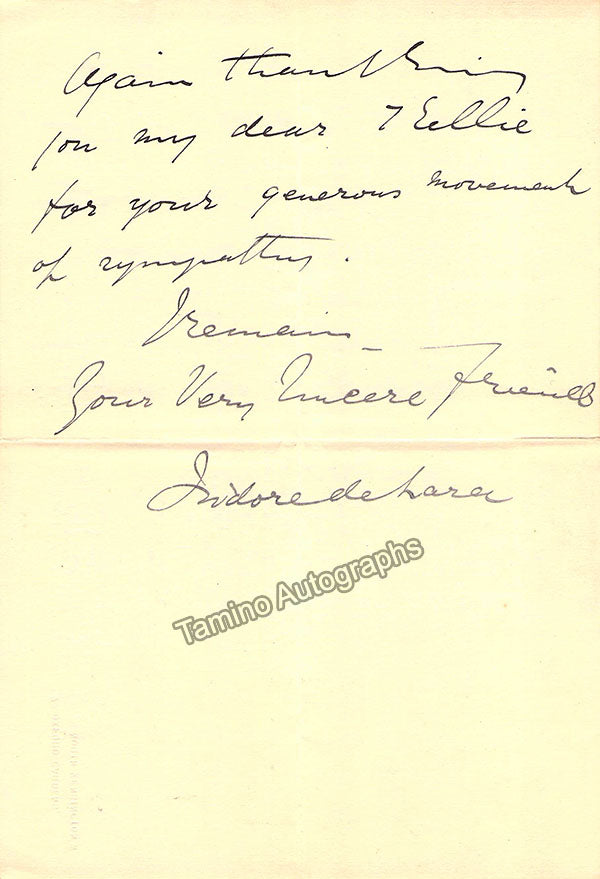 Again thanking
you my dear Nellie
for your generous movement
of sympathy.
I remain
Your Very Sincere Friend
Isidore de Lara
Tamino Autographs